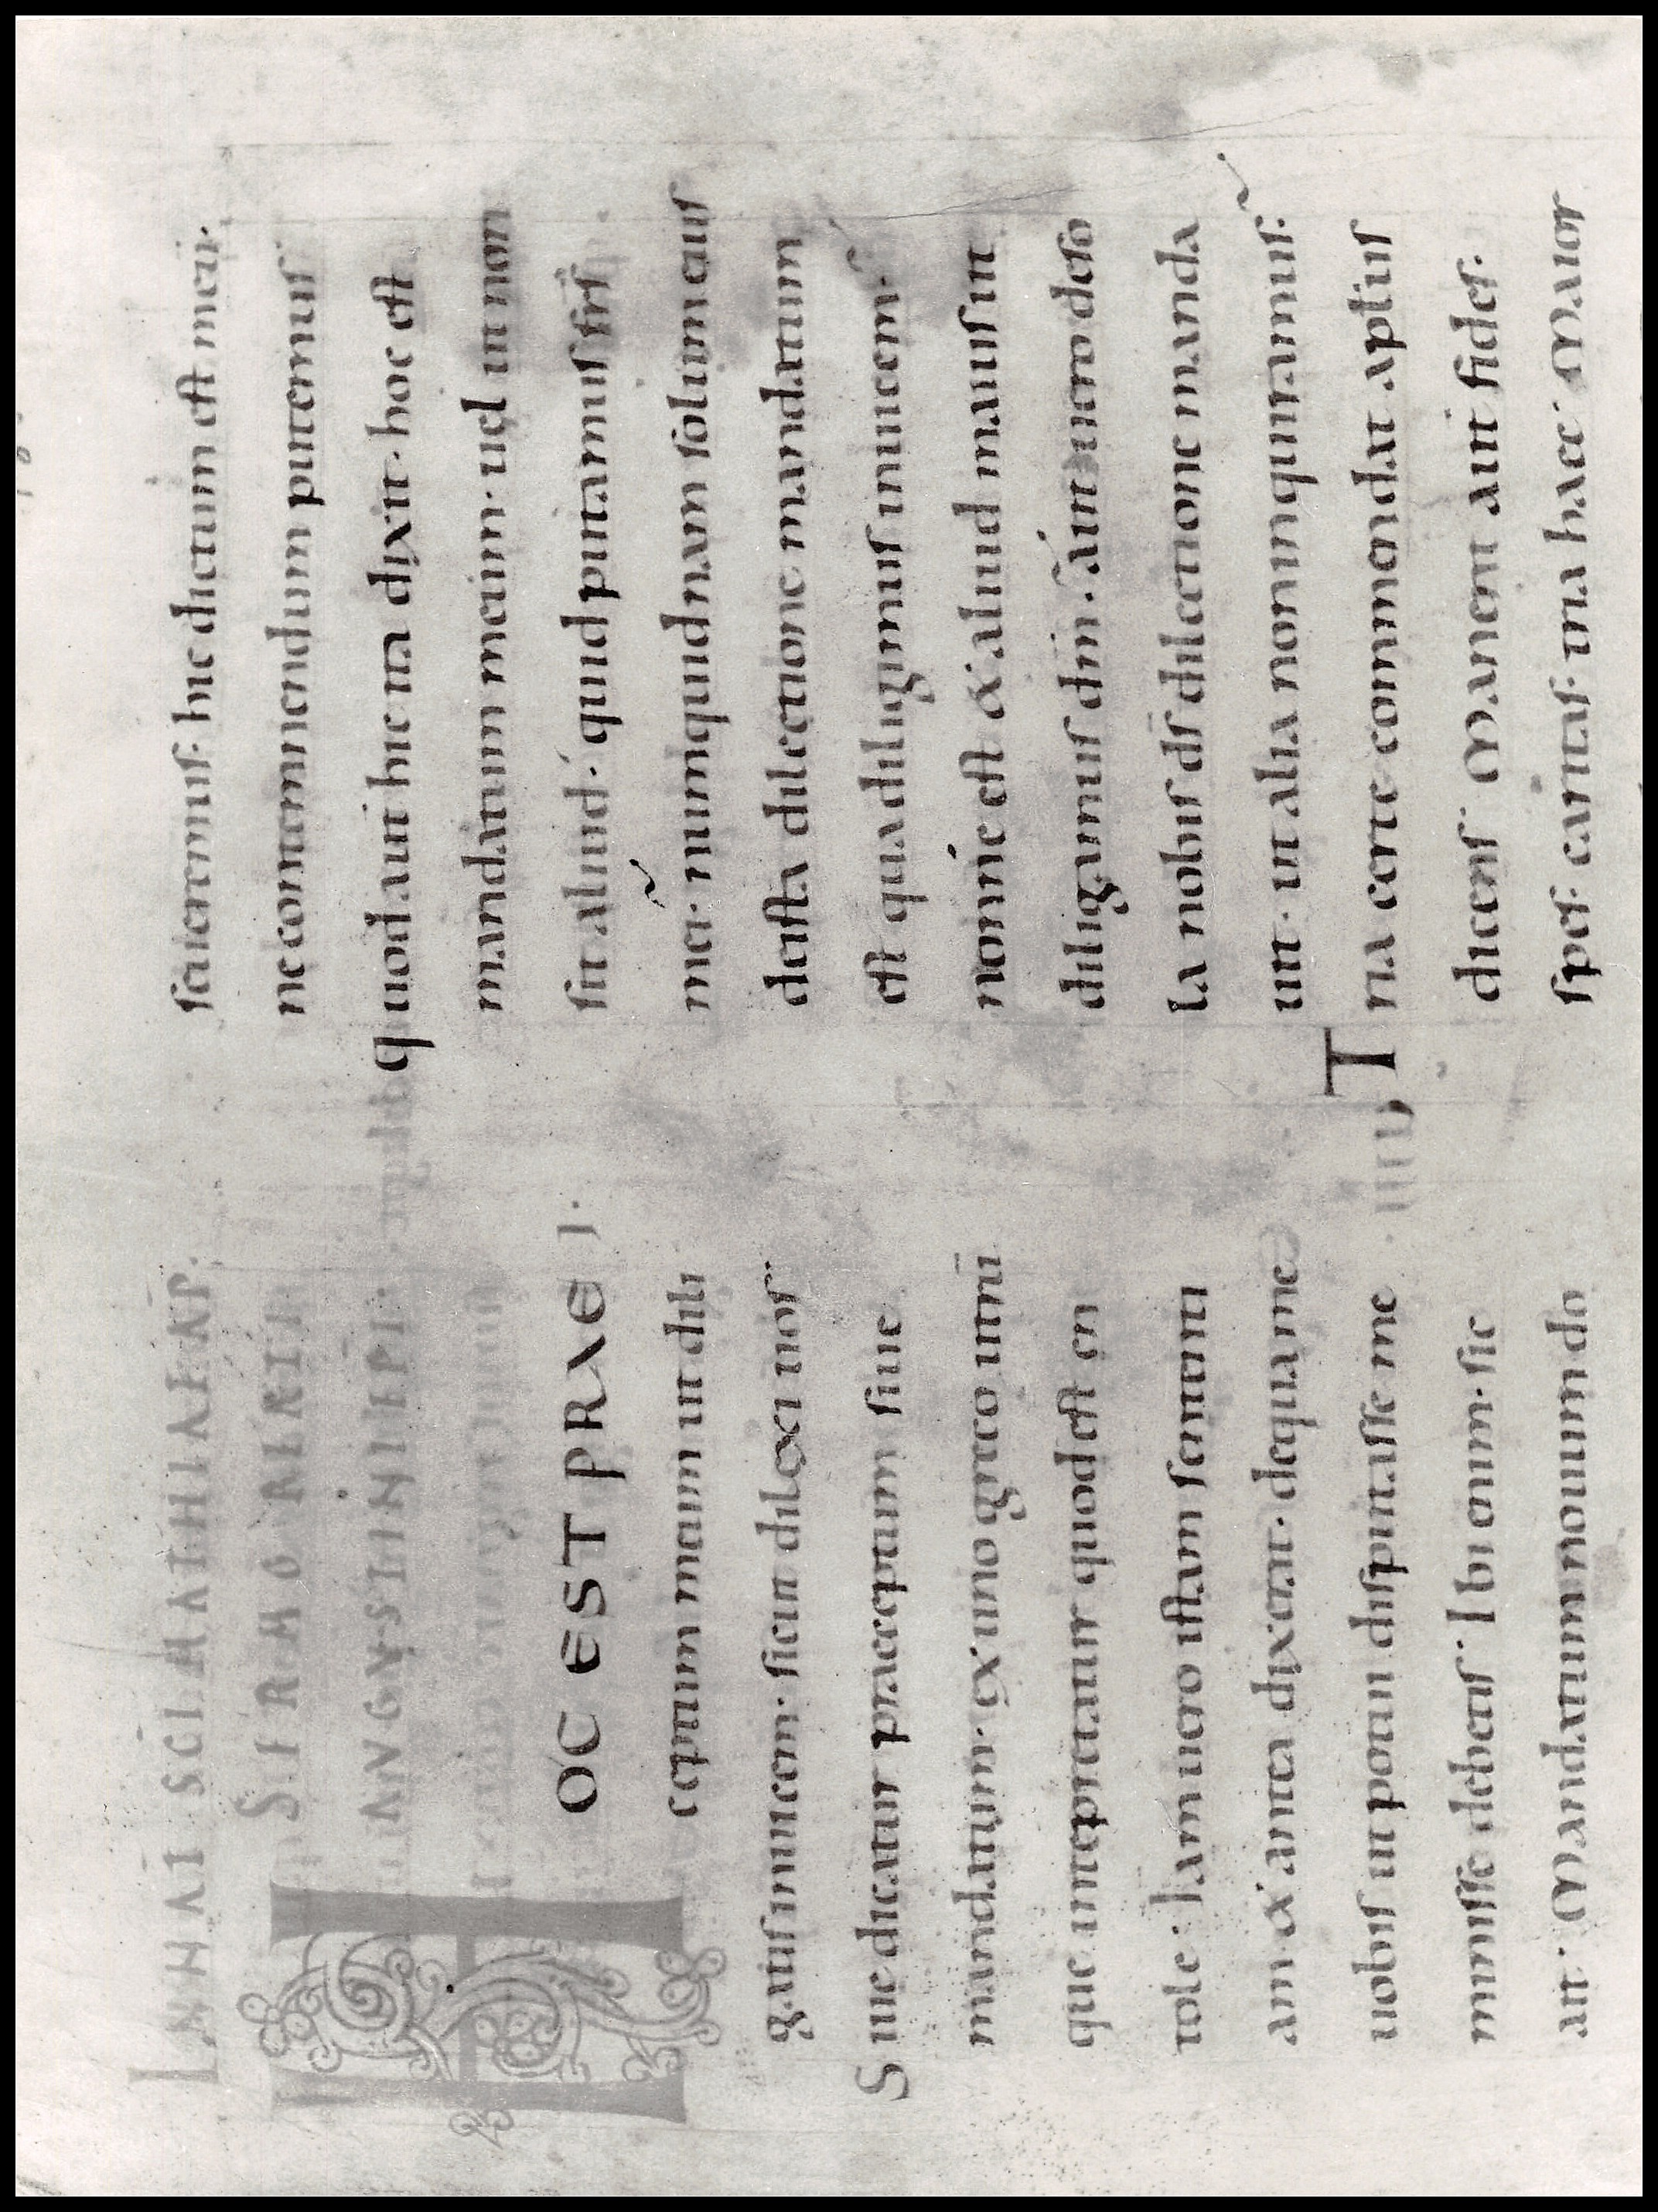 IN NAT SCI MATHIAE AP.
SERMO BEATI
AVGVSTINI EPI.
HOC EST PRAE
ceptum meum ut dili
gatis inuicem· sicut dilexi uos·
Siue dicatur praeceptum siue
mandatum· ex uno greco utrū
que interpretatur quod est en
tole· Iam uero istam sententi
am & antea dixerat· de qua me
uobis ut potui disputasse me
minisse debetis· Ibi enim· sic
ait· Mandatum nouum do
hic dictum est mei·
ne contemnendum putemus
quod ait hic ita dixit· hoc est
mandatum meum· uel ut non
sit aliud· quid putamus fr̄s
mei· numquidnam solum eius
de ista dilectione mandatum
est qua diligimus inuicem·
nonne est & aliud maius ut
diligamus dm̄· Aut uero de so
la nobis ds̄ dilectione manda
uit· ut alia non inquiramus·
Tria certe commendat aplius
dicens· Manent aut fides·
spes· caritas· tria haec· Maior